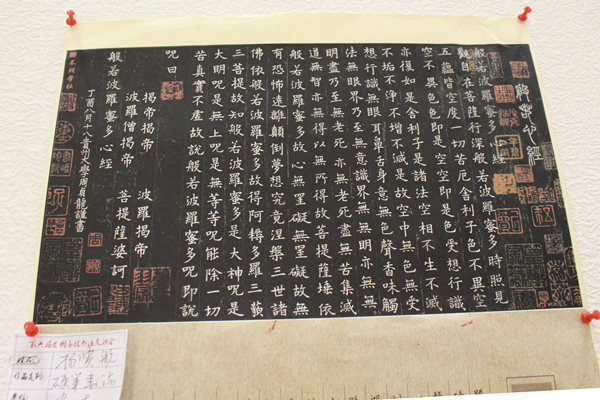 心經
般若波羅蜜多心經
觀自在菩薩行深般若波羅蜜多時照見
五蘊皆空度一切苦厄舍利子色不異空
空不異色色即是空空即是色受想行識
亦復如是舍利子是諸法空相不生不滅
不垢不淨不增不減是故空中無色無受
想行識無眼耳鼻舌身意無色聲香味觸
法無眼界乃至無意識界無無明亦無無
明盡乃至無老死亦無老死盡無苦集滅
道無智亦無得以無所得故菩提薩埵依
般若波羅蜜多故心無罣礙無罣礙故無
有恐怖遠離顛倒夢想究竟涅槃三世諸
佛依般若波羅蜜多故得阿耨多羅三藐
三菩提故知般若波羅蜜多是大神呪是
大明呪是無上呪是無等等呪能除一切
苦真實不虛故說般若波羅蜜多呪即說
呪曰
揭帝揭帝 波羅揭帝
波羅僧揭帝 菩提薩婆訶
般若波羅蜜多心經
丁酉八月十八貴州大學周貞龍謹書
作品类别 硬笔书法